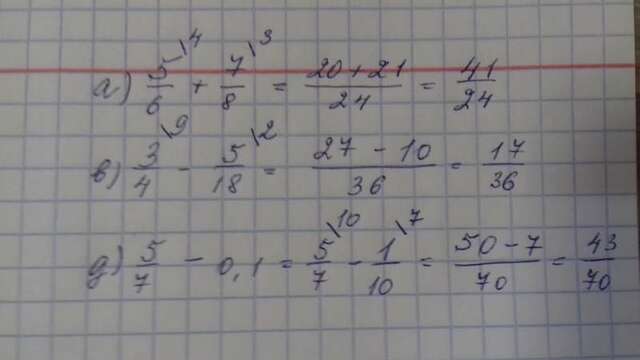 а) 5/6 \4 + 7/8 \3 = (20+21)/24 = 41/24
в) 3/4 \9 - 5/18 \2 = (27-10)/36 = 17/36
д) 5/7 - 0,1 = 5/7 \10 - 1/10 \7 = (50-7)/70 = 43/70